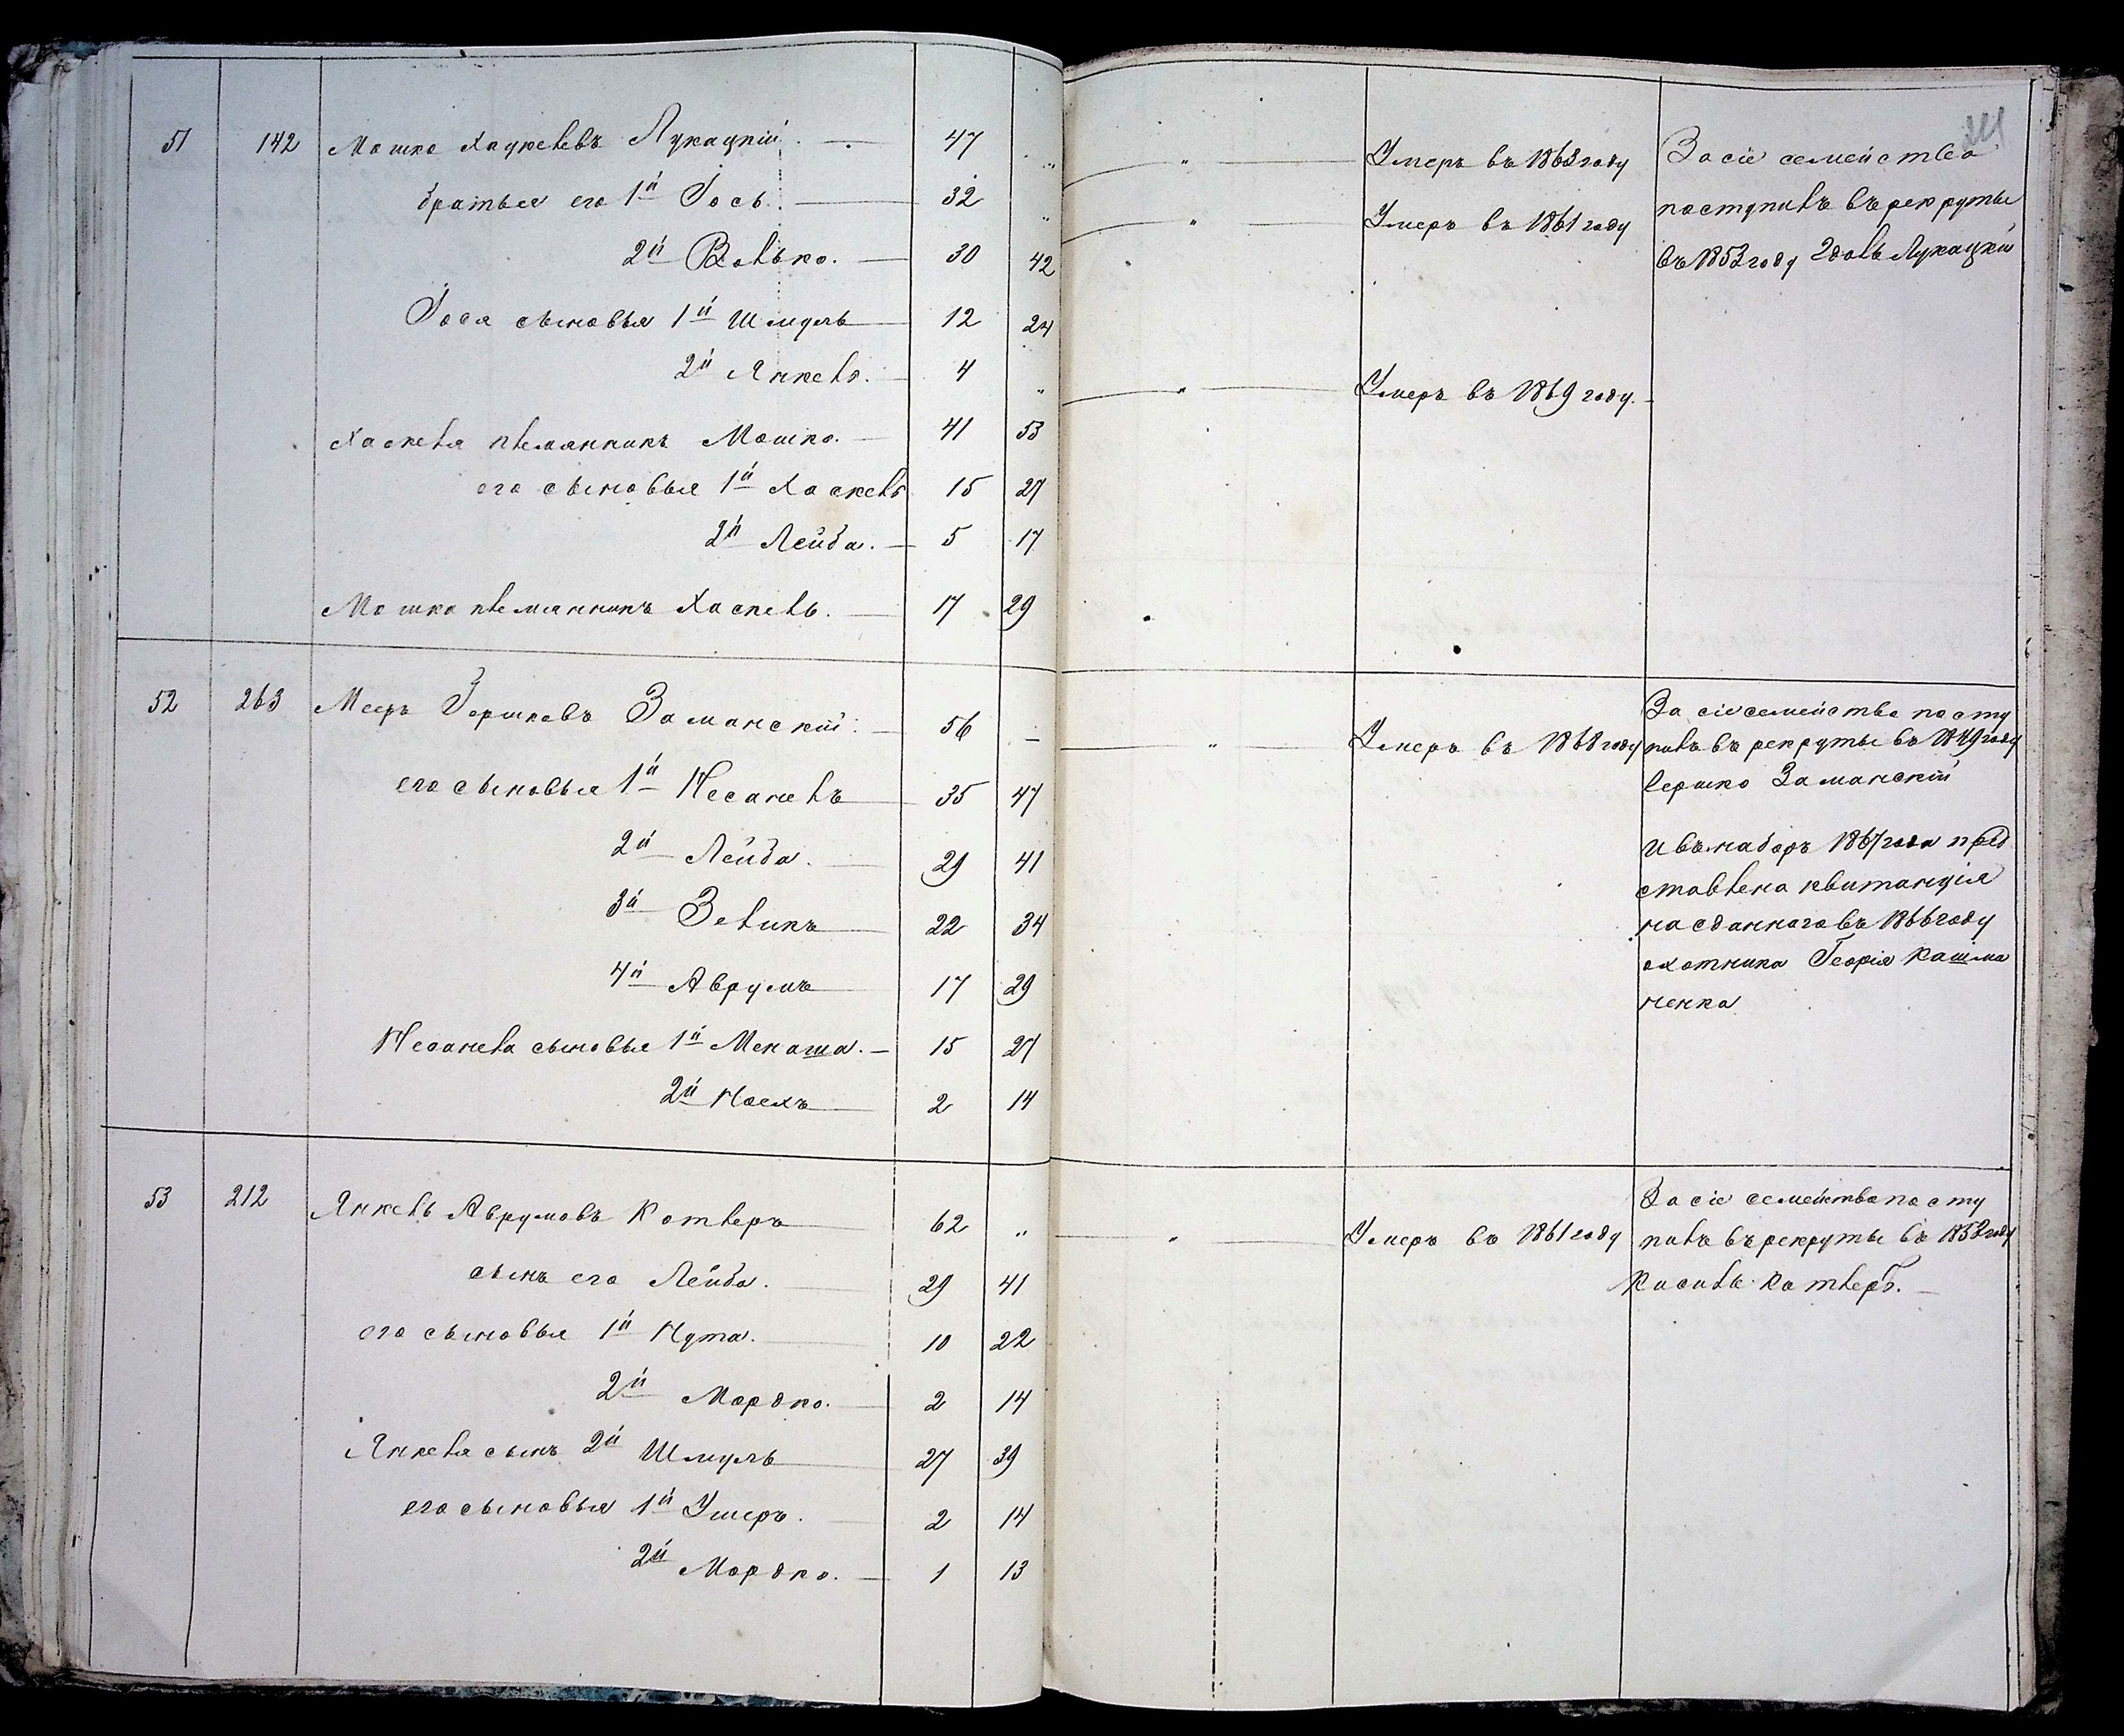 51 142 Мошко Хацкелевъ Лукацкій 47 " " Умеръ въ 1863 году За сіе семейство
братья его 1й Іось 32 " " Умеръ въ 1861 году поступилъ въ рекруты
2й Волько. 30 42 въ 1853 году Лукацкій
Іося сыновья 1й Шмуль 12 24
2й Янкель. 4 " " Умеръ въ 1869 году.
Хаскеля племянникъ Мошко. 41 53
его сыновья 1й Хаскель 15 27
2й Лейба. 5 17
Мошка племянникъ Хаскель. 17 29
52 263 Мееръ Гершковъ Заманскій 56 — " Умеръ въ 1868 году За сіе семейство посту
его сыновья 1й Несанелъ 35 47 пилъ въ рекруты въ 1849 году
Гершко Заманскій
2й Лейба. 29 41 и въ наборъ 1867 года пред
3й Зеликъ 22 34 ставлена квитанція
на сданнаго въ 1866 году
4й Аврумъ 17 29 охотника Георгія Кашма
ненка
Несанела сыновья 1й Менаша. 15 27
2й Ноехъ 2 14
53 212 Янкель Аврумовъ Котлеръ 62 " " Умеръ въ 1861 году За сіе семейство посту
пилъ въ рекруты въ 1852 году
сынъ его Лейба. 29 41 Кисиль Котлеръ.
его сыновья 1й Нута. 10 22
2й Мордко. 2 14
Янкеля сынъ 2й Шмуль 27 39
его сыновья 1й Ушеръ. 2 14
2й Мордко. 1 13